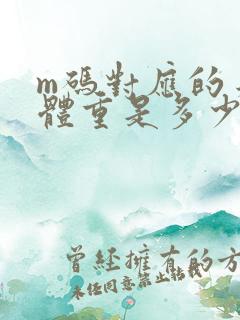 m碼對應的
體重是多少
曾經擁有的方
未任同意禁止轉載